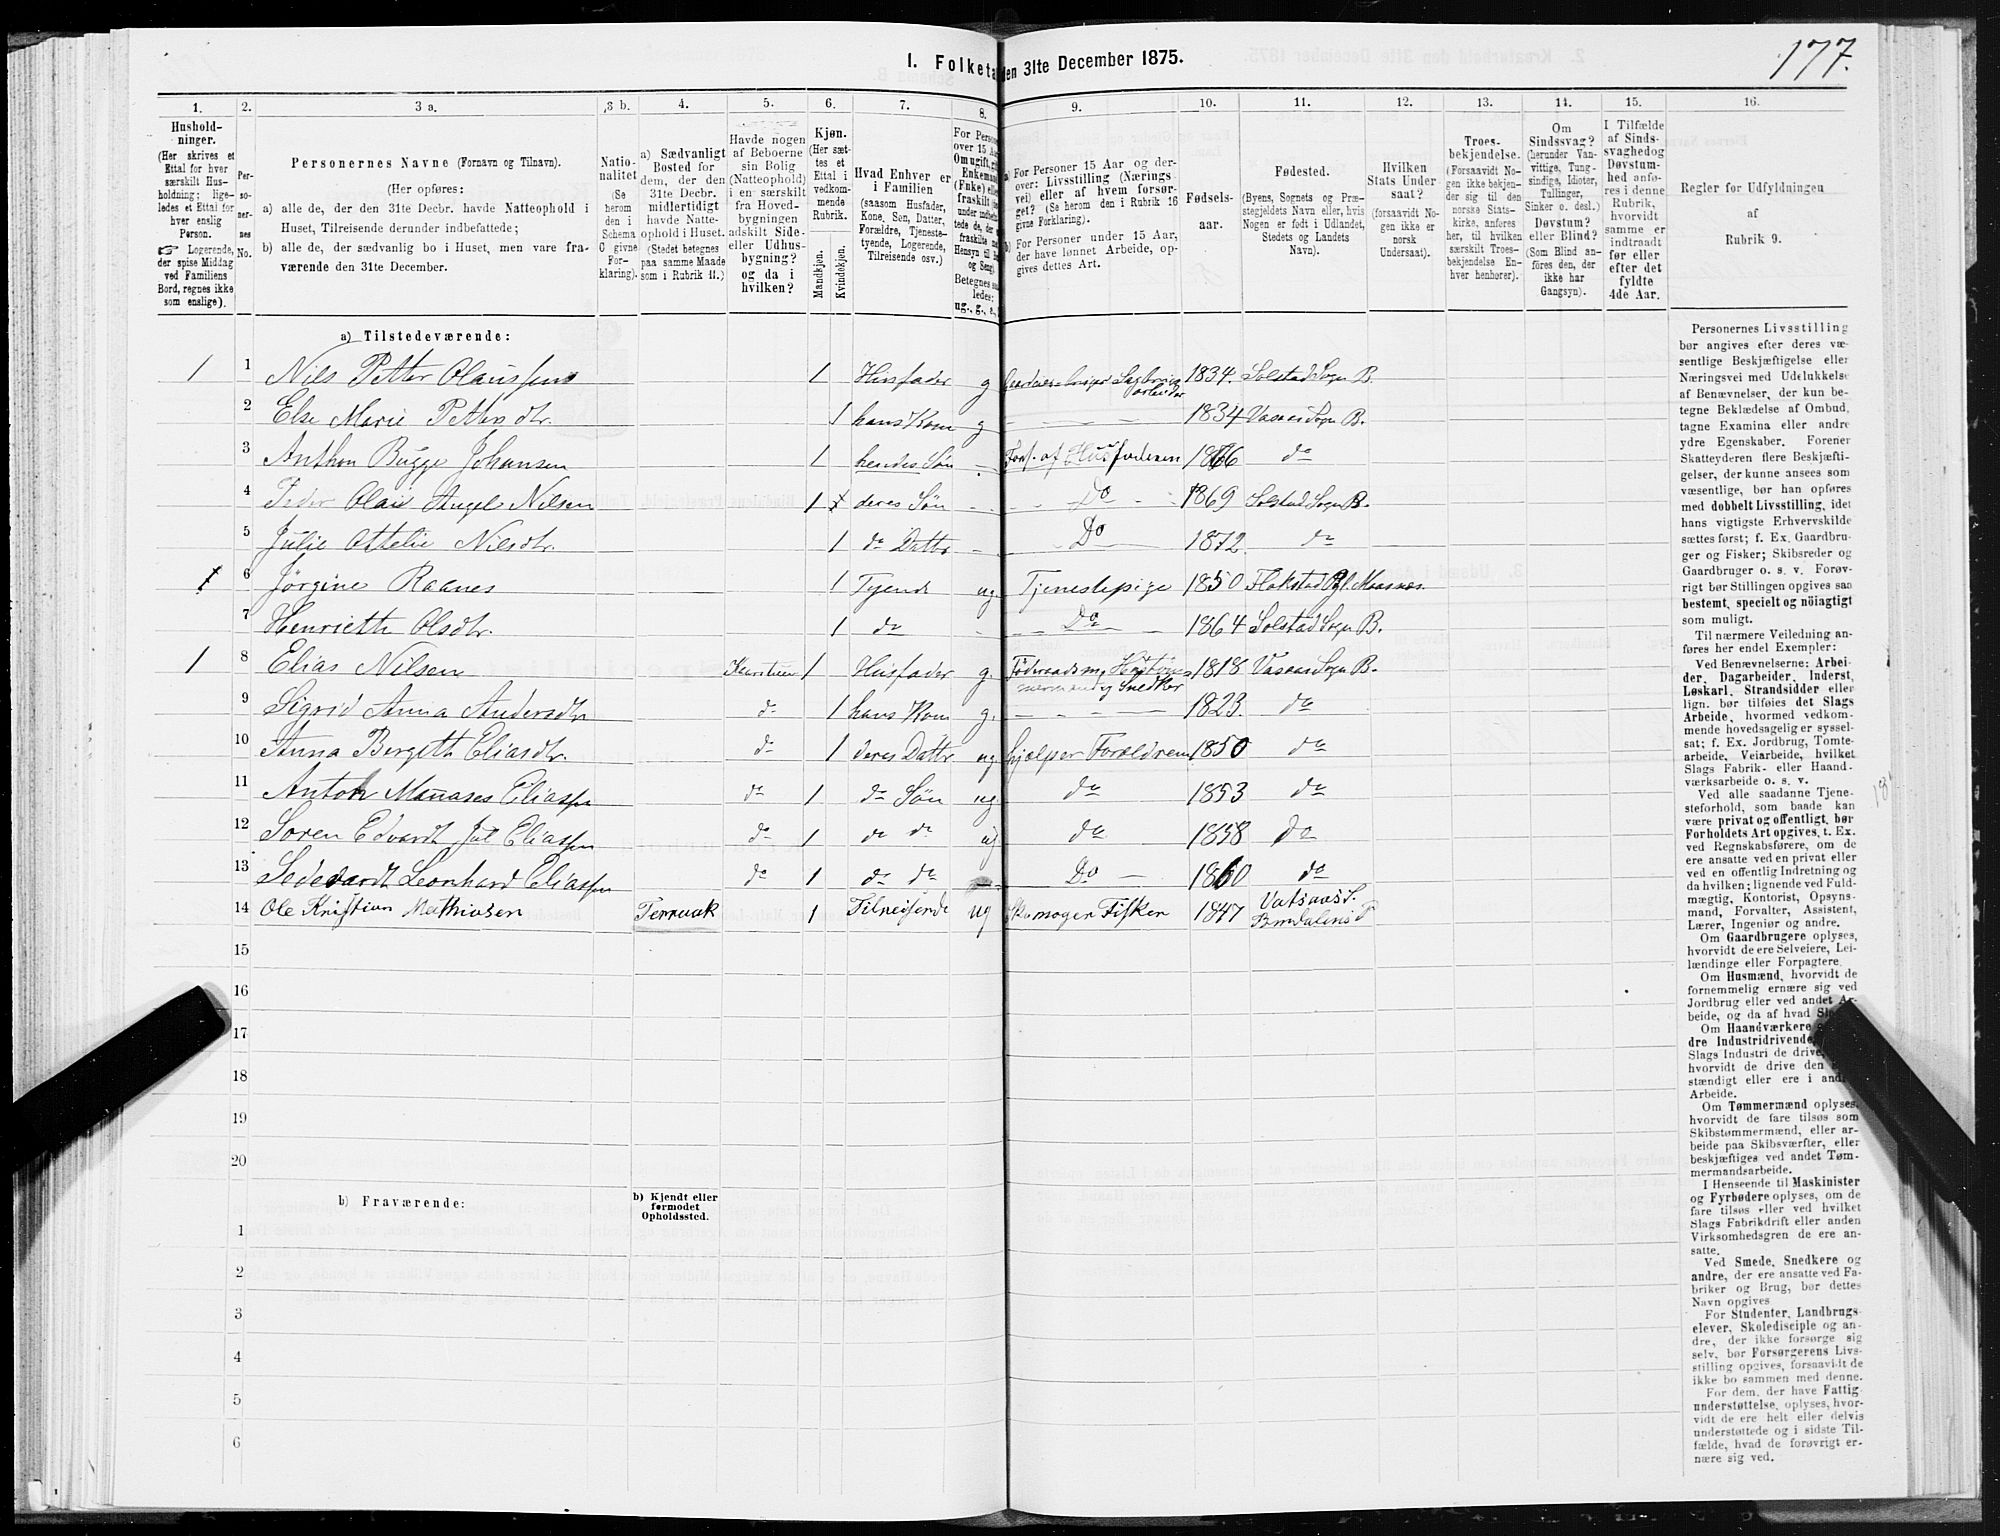 177.
1. Folketa den 31te December 1875.
1. 2. 3 a. 3 b. 4. 5. 6. 7. 8. 9. 10. 11. 12. 13. 14. 15. 16.
Hushold-
ninger.
(Her skrives et
Ettal for hver
særskilt Hus-
holdning; lige-
ledes et Ettal for
hver enslig
Person.
☞ Logerende,
der spise Middag
ved Familiens
Bord, regnes ikke
som enslige).
Per-
so-
ner-
nes
No.
Personernes Navne (Fornavn og Tilnavn).
(Her opføres:
a) alle de, der den 31te Decbr. havde Natteophold i
Huset, Tilreisende derunder indbefattede;
b) alle de, der sædvanlig bo i Huset, men vare fra-
værende den 31te December.
Natio-
nalitet
(Se
herom
den i
Schema
C givne
For-
klaring).
a) Sædvanligt
Bosted for
dem, der den
31te Decbr.
midlertidigt
havde Natte-
ophold i Huset.
(Stedet betegnes
paa samme Maade
som i Rubrik 11.)
Havde nogen
af Beboerne
sin Bolig
(Natteophold)
i en særskilt
fra Hoved-
bygningen
adskilt Side-
eller Udhus-
bygning?
og da i
hvilken?
Kjøn.
(Her sæt-
tes et
Ettal i
vedkom-
mende
Rubrik.
Mandkjøn.
Kvindekjøn.
Hvad Enhver er
i Familien
(saasom Husfader,
Kone, Søn, Datter,
Forældre, Tjeneste-
tyende, Logerende,
Tilreisende osv.)
For Person
over 15 Aar
Om ugift,
Enkemand
(Enke) elle
fraskilt
ug., g., e.,
a) For Personer 15 Aar og der-
over: Livsstilling (Nærings
vei) eller af hvem forsør-
get? (Se herom den i Rubrik 16
givne Forklaring).
b) For Personer under 15 Aar,
der have lønnet Arbeide, op-
gives dettes Art.
Fødsels-
aar.
Fødested.
(Byens, Sognets og Præ-
stegjeldets Navn eller, hvis
Nogen er født i Udlandet,
Stedets og Landets
Navn).
Hvilken
Stats Under
saat?
(forsaavidt No-
gen ikke er
norsk
Undersaat).
Troes-
bekjendelse.
(Forsaavidt No-
gen ikke bekjen-
der sig til den
norske Stats-
kirke, anføres
her, til hvilken
særskilt Troes-
bekjendelse En-
hver henhører).
Om
Sindssvag?
(herunder Van-
vittige, Tung-
sindige, Idioter,
Tullinger,
Sinker o. desl.)
Døvstum?
eller Blind?
(Som Blind an-
føres den, der
ikke har
Gangsyn).
I Tilfælde
af Sinds-
svaghedog
Døvstum-
hed anfø-
res i denne
Rubrik,
hvorvidt
samme er
indtraadt
før eller
efter det
fyldte
4de Aar.
Regler for Udfyldningen
af
Rubrik 9.
a) Tilstedeværende:
1 1 Nils Petter Olaussen 1 Husfader g Gaardmandbruger Sagbrugs arbeider 1834. Solstad Sogn B.
2 Else Marie Pettersdtr. 1 hans Kone g 1834 Vasaas Sogn B.
3 Anthon Bugge Johansen 1 hendes Søn Fors. af Husfaderen 1866 do
4 Peder Olai Angel Nilsen 1 deres Søn Do 1869 Solstad Sogn B.
5 Julie Ottelie Nilsdtr. 1 do Dattr Do 1872. do
6 Jørgine Raanes 1 Tyende ug. Tjenestepige 1850
7 Henriette Olsdtr. 1 do Do 1864 Solstad Sogn B.
1 8 Elias Nilsen 1 Husfader g. Føderaadsm Snedker 1818 Vasaas Sogn B.
9 Sigrid Anna Andersdtr do 1 hans Kone g. 1823. do
10 Anna Bergith Eliasdtr. do 1 deres Dattr ug hjelper Forældrene 1850 do
11 Anton Manases Eliassen do 1 do Søn ug. do 1853 do
12 Søren Edvardt Eliassen do 1 do do ug do 1858 do
13 Leonhard Eliassen do 1 do do Do 1860 do
14 Ole Kristian Mathiasen Terraak 1 Tilreisende ug Skomager Fisker 1847 Vatsaas S. Bindalens P
15
16
17
18
19
20
b) Fraværende:
b) Kjendt eller
formodet
Opholdssted.
1
2
3
4
5
6
Personernes Livsstilling
bør angives efter deres væ-
sentlige Beskjæftigelse eller
Næringsvei med Udelukkelse
af Benævnelser, der kun be-
tegne Beklædelse af Ombud,
tagne Examina eller andre
ydre Egenskaber. Forener
Skatteyderen flere Beskjæfti-
gelser, der kunne ansees som
væsentlige, bør han opføres
med dobbelt Livsstilling, idet
hans vigtigste Erhvervskilde
sættes først; f. Ex. Gaardbru-
ger og Fisker; Skibsreder og
Gaardbruger o. s. v. Forøv-
rigt bør Stillingen opgives saa
bestemt, specielt og nöiagtigt
som muligt.
Til nærmere Veiledning an-
føres her endel Exempler:
Ved Benævnelserne: Arbei-
der, Dagarbeider, Inderst,
Løskarl, Strandsidder eller
lign. bør tilføies det Slags
Arbeide, hvormed vedkom-
mende hovedsagelig er syssel-
sat; f. Ex. Jordbrug, Tomte-
arbeide, Veiarbeide, hvilket
Slags Fabrik- eller Haand-
værksarbeide o. s. v.
Ved alle saadanne Tjene-
steforhold, som baade kan
være privat og offentligt, bør
Forholdets Art opgives, t. Ex.
ved Regnskabsførere, om de
ere ansatte ved en privat eller
ved en offentlig Indretning og
da hvilken; lignende ved Fuld-
mægtig, Kontorist, Opsyns-
mand, Forvalter, Assistent,
Lærer, Ingeniør og andre.
Om Gaardbrugere oplyses,
hvorvidt de ere Selveiere, Lei-
lændinge eller Forpagtere.
Om Husmænd, hvorvidt de
fornemmelig ernære sig ved
Jordbrug eller ved andet Ar-
beide, og da af hvad Sl
Om Haandværkere
dre Industridrivende,
Slags Industri de drive,
hvorvidt de drive den
stændigt eller ere i and
Arbeide.
Om Tømmermænd oplyses,
hvorvidt de fare tilsøs som
Skibstømmermænd, eller ar-
beide paa Skibsværfter, eller
beskjæftiges ved andet Tøm-
mermandsarbeide.
I Henseende til Maskinister
og Fyrbødere oplyses, om de
fare tilsøs eller ved hvilket
Slags Fabrikdrift eller anden
Virksomhedsgren de ere an-
satte.
Ved Smede, Snedkere og
andre, der ere ansatte ved Fa-
briker og Brug, bør dettes
Navn opgives
For Studenter, Landbrugs-
elever, Skoledisciple og an-
dre, der ikke forsørge sig
selv, bør Forsørgerens Livs-
stilling opgives, forsaavidt de
ikke bo sammen med denne.
For dem, der have Fattig-
understøttelse, oplyses, hvor-
vidt de ere helt eller delvis
understøttede og i sidste Til-
fælde, hvad de forøvrigt er-
nære sig ved.